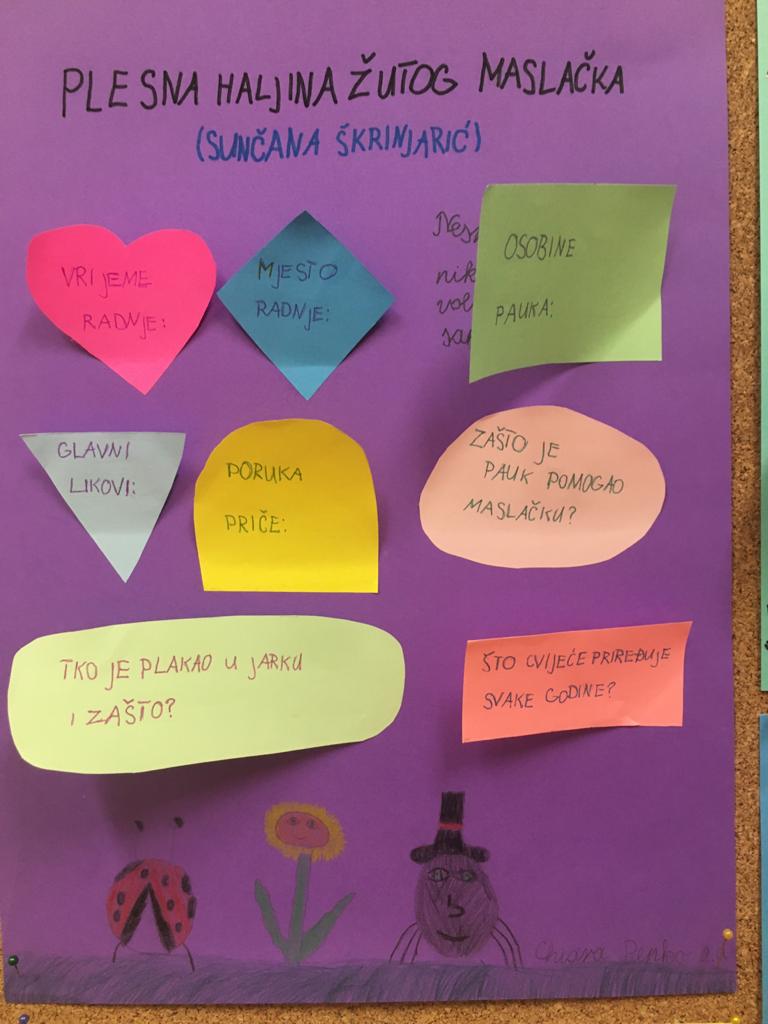 PLESNA HALJINA ŽUTOG MASLAČKA
(SUNČANA ŠKRINJARIĆ)
VRIJEME
RADNJE:
MJESTO
RADNJE:
OSOBINE
PAUKA:
GLAVNI
LIKOVI:
PORUKA
PRIČE:
ZAŠTO JE
PAUK POMOGAO
MASLAČKU?
TKO JE PLAKAO U JARKU
I ZAŠTO?
ŠTO CVIJEĆE PRIREĐUJE
SVAKE GODINE?
Chiara